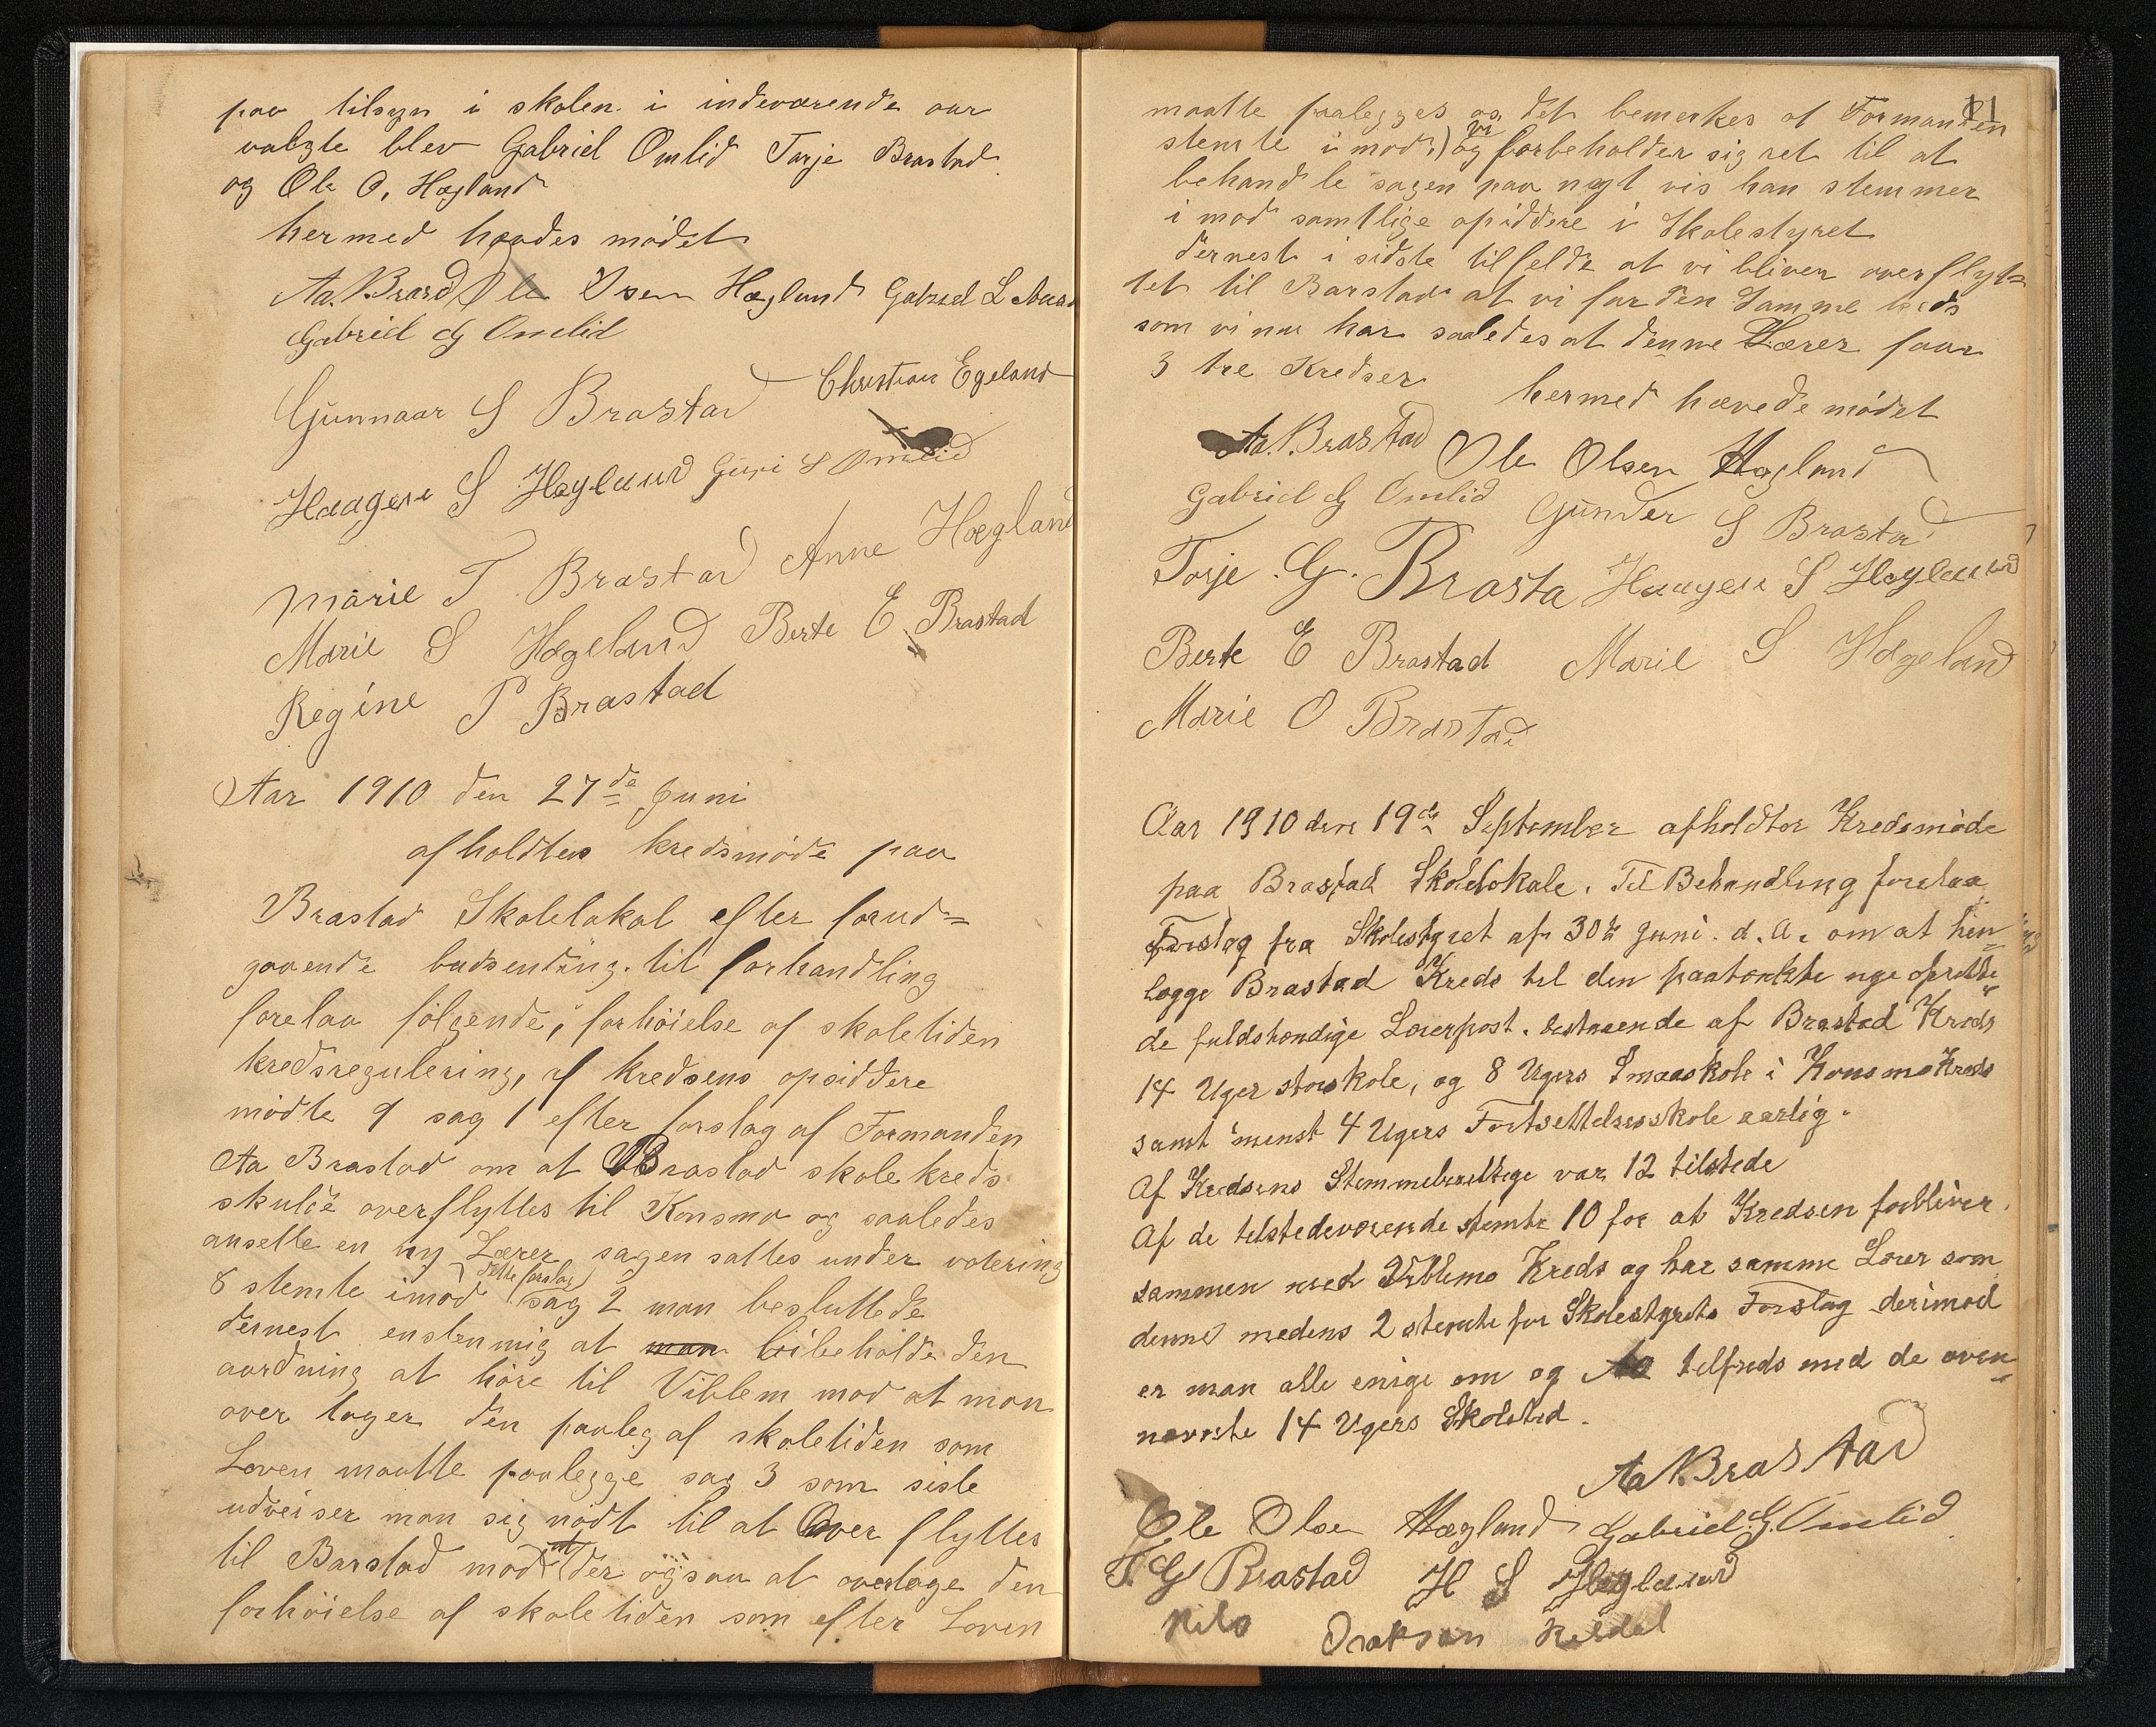 paa tilsyn i skolen i indeværende aar
valgte blev Gabriel Omlid Tarje Brastad
og Ole O. Hægland
hermed hævdes mödet
Aa. Brasd Ole Osen Hægland Gabriel L
Gabriel G Omlid
Gunnaar S Brastad Christian Egeland
Haagen S Høgland Guri S Omlid
Marie T Brastad Anne Hægland
Marie S Hægeland Berte E Brastad
Regine P Brastad
Aar 1910 den 27de Juni
afholdtes kredsmöde paa
Brastad Skolelokal efter forud=
gaaende budsending. til forhandling
forelaa fölgende, forhöielse af skoletiden
kredsregulering, af kredsens opsiddere
mödte 9 sag 1 efter forslag af Formanden
Aa Brastad om at Brastad skolekreds
skulde overflyttes til Konsmo og saaledes
ansette en ny Lærer sagen sattes under votering
8 stemte imod dette forslag sag 2 man besluttede
dernest enstemmig at man bibeholde den
aordning at höre til Viblem mod at man
over tager den paaleg af skoletiden som
Loven maatte paalegge sag 3 som siste
udveiser man sig nödt til at Over flyttes
til Barstad mod at der ogsaa at overtage den
forhöielse af skoletiden som efter Loven
11
maatte paalegges os, det bemerkes at Formanden
stemte i mod.) og vi forbeholder sig ret til at
behandle sagen paa nyt vis han stemmer
i mod samtlige opsiddere i Skolestyret
dernest i sidste tilfelde at vi bliver overflyt=
tet til Barstad at vi faar den samme
som vi nu har saaledes at denne Lærer faar
3 tre Kredser
hermed hævede mödet
Aa. Brastad Ole Olsen Hægland
Gabriel G Omlid Gunder S Brastad
Torje . G. Brasta Haagen S Høgland
Berte E Brastad Marie S Hægeland
Marie O Brastad
Aar 1910 den 19de September afholdtes Kredsmöde
paa Brastad Skolelokale. Til Behandling forelaa
Forslag fra Skolestyret af 30te Juni d. A. om at hen=
lægge Brastad Kreds til den paatænkte nye oprette=
de fuldstændige Lærerpost. bestaaende af Brastad Kreds
14 Uger storskole, og 8 Ugers Smaaskole i Konsmo Kreds
samt minst 4 Ugers Fortsettelsesskole aarlig.
Af Kredsens Stemmeberettige var 12 tilstede
Af de tilstedeværende stemte 10 for at Kredsen forbliver
sammen med Viblemo Kreds og har samme Lærer som
denne medens 2 stemte for Skolestyrets Forslag derimod
er man alle enige om og tilfreds med de oven=
nævnte 14 Ugers Skoletid.
Aa. Brastad
Ole Olsen Hægland Gabriel G. Omlid
T. G Brastad H S Høgland
Nils